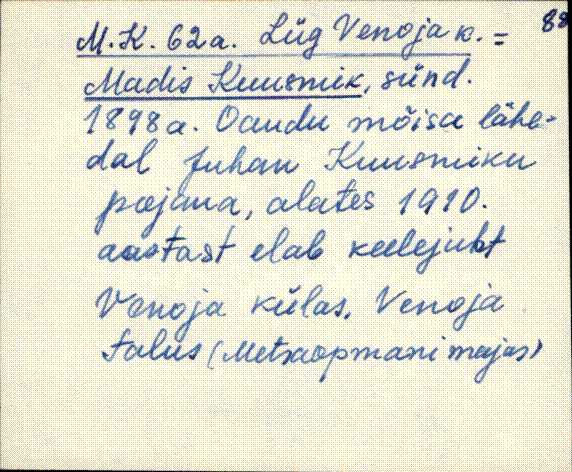 88
M.K. 62a. Lüg Venoja k. =
Madis Kuusmik, sünd.
1898a. Oandu mõisa lähe-
dal Juhan Kuusmiku
pojana, alates 1910.
aastast elab keelejuht
Venoja külas, Venoja
talus (Metsaopmani majas)